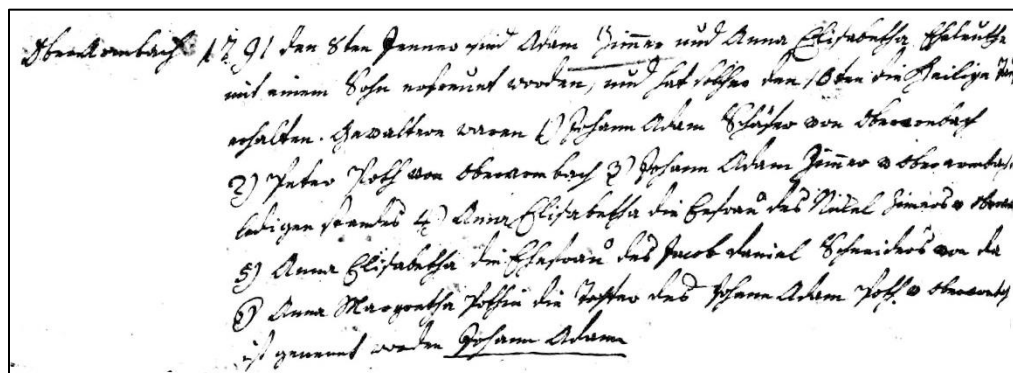 Oberarnbach 1791 den 8ten Jenner sind Adam Zimmer und Anna Elisabetha Eheleuthe
mit einem Sohn erfreuet worden, und hat solcher den 10ten die Heilige Tauf
erhalten. Gevattern waren 1) Johann Adam Schäfer von Oberarnbach
2) Peter Poth von Oberarnbach 3) Johann Adam Zimmer v Oberarnbach
ledigen standes 4) Anna Elisabetha die Eefrau des Nikel Zimers v
5) Anna Elisabetha die Ehefrau des Jacob Daniel Schneiders von da
6) Anna Margretha Pothin die Tochter des Johann Adam Poth v Oberarnbach
ist genennt worden Johann Adam